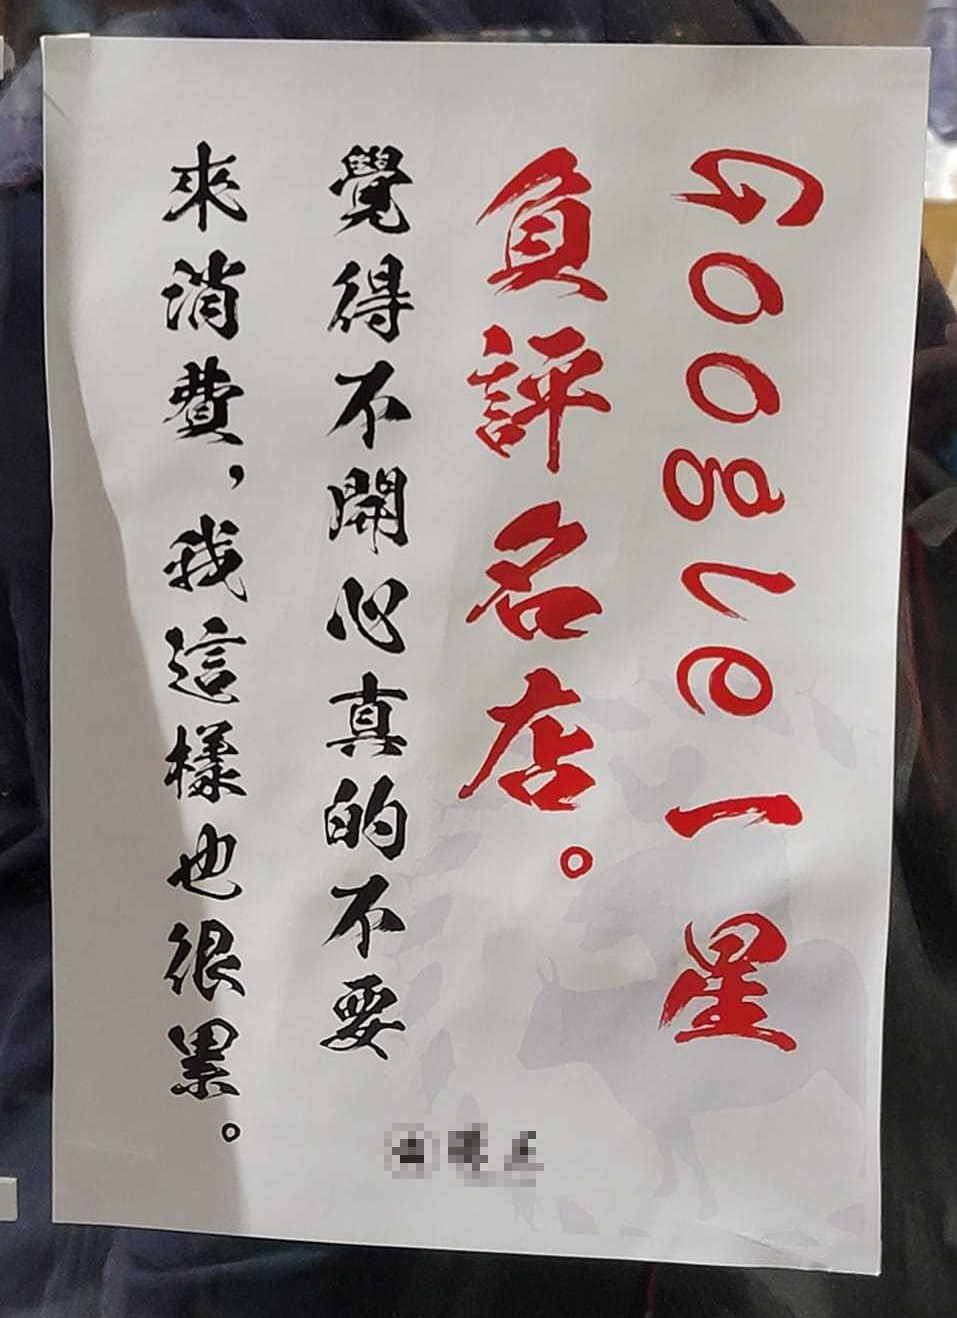 Google一星
負評名店。
覺得不開心真的不要
來消費，我這樣也很累。